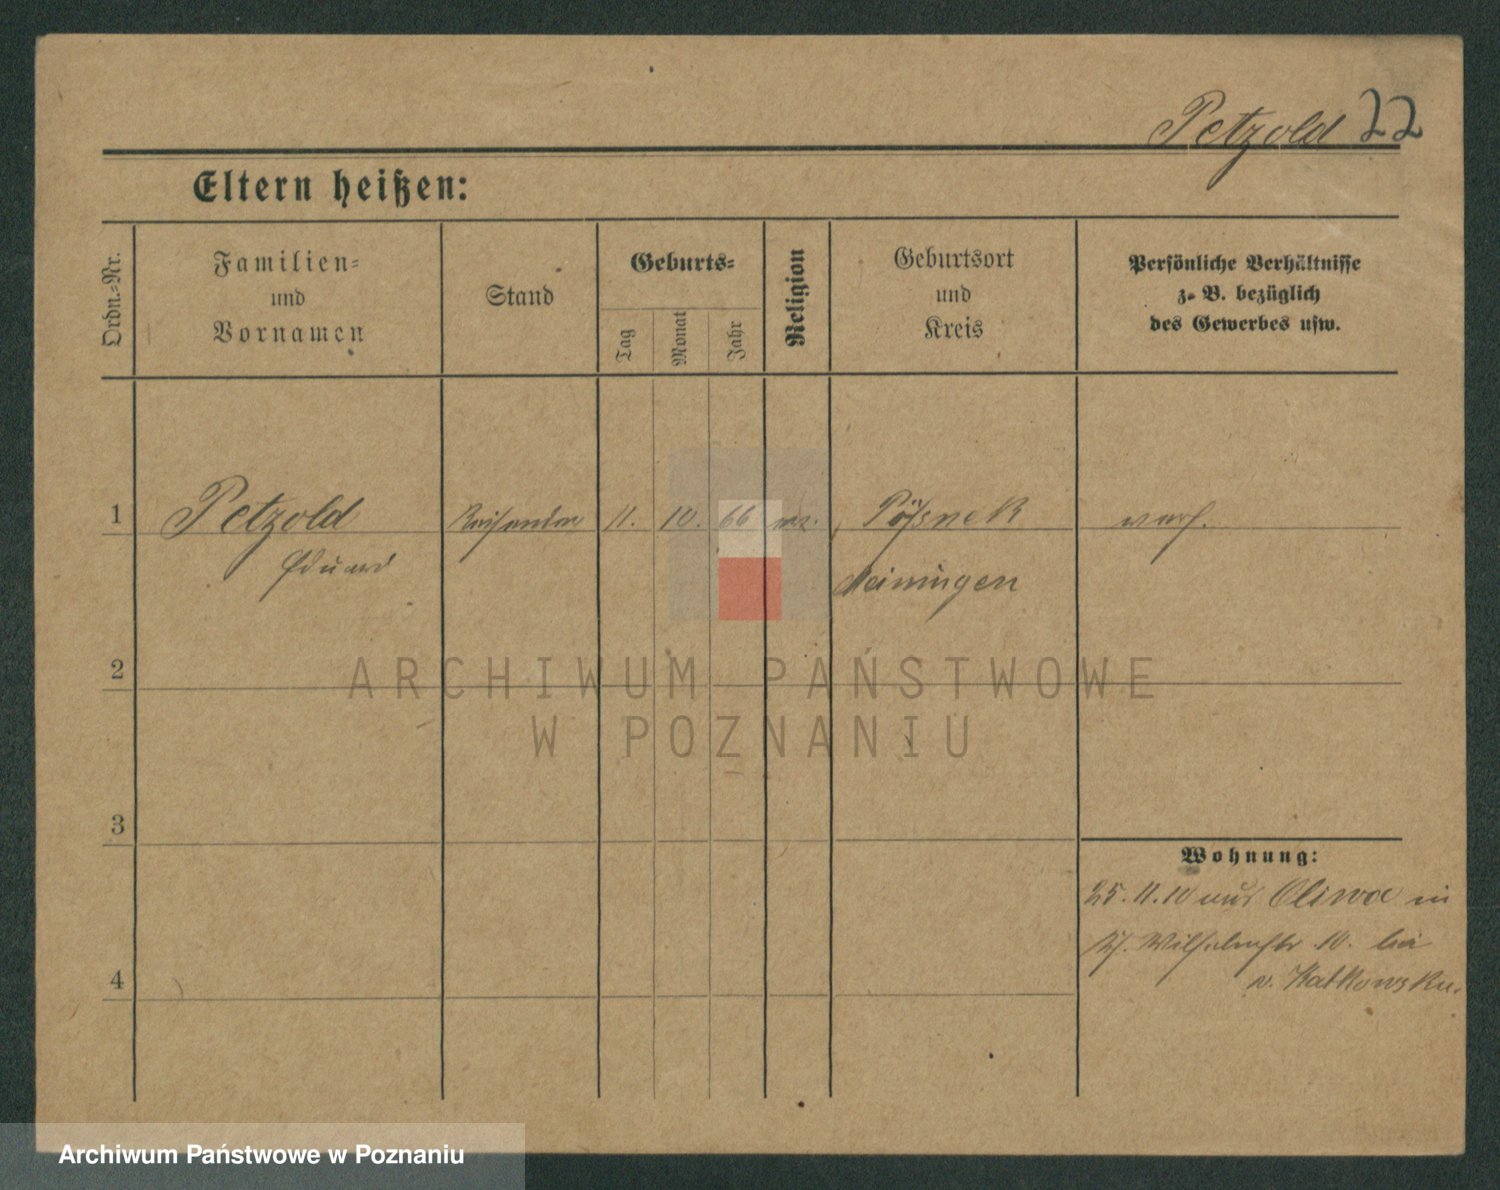 Petzold 22
Eltern heißen:
Ordn.=Nr.
Familien=
und
Vornamen
Stand
Geburts=
Tag
Monat
Jahr
Religion
Geburtsort
und
Kreis
Persönliche Verhältnisse
z. B. bezüglich
des Gewerbes usw.
1 Petzold Reisender 11. 10. 66 Pößnek verh.
Eduard Meiningen
2
3
4
Wohnung:
25. 11. 10 aus Oliwa in
Wilhelmstr. 10. bei
v.
ARCHIWUM PAŃSTWOWE
W POZNANIU
Archiwum Państwowe w Poznaniu